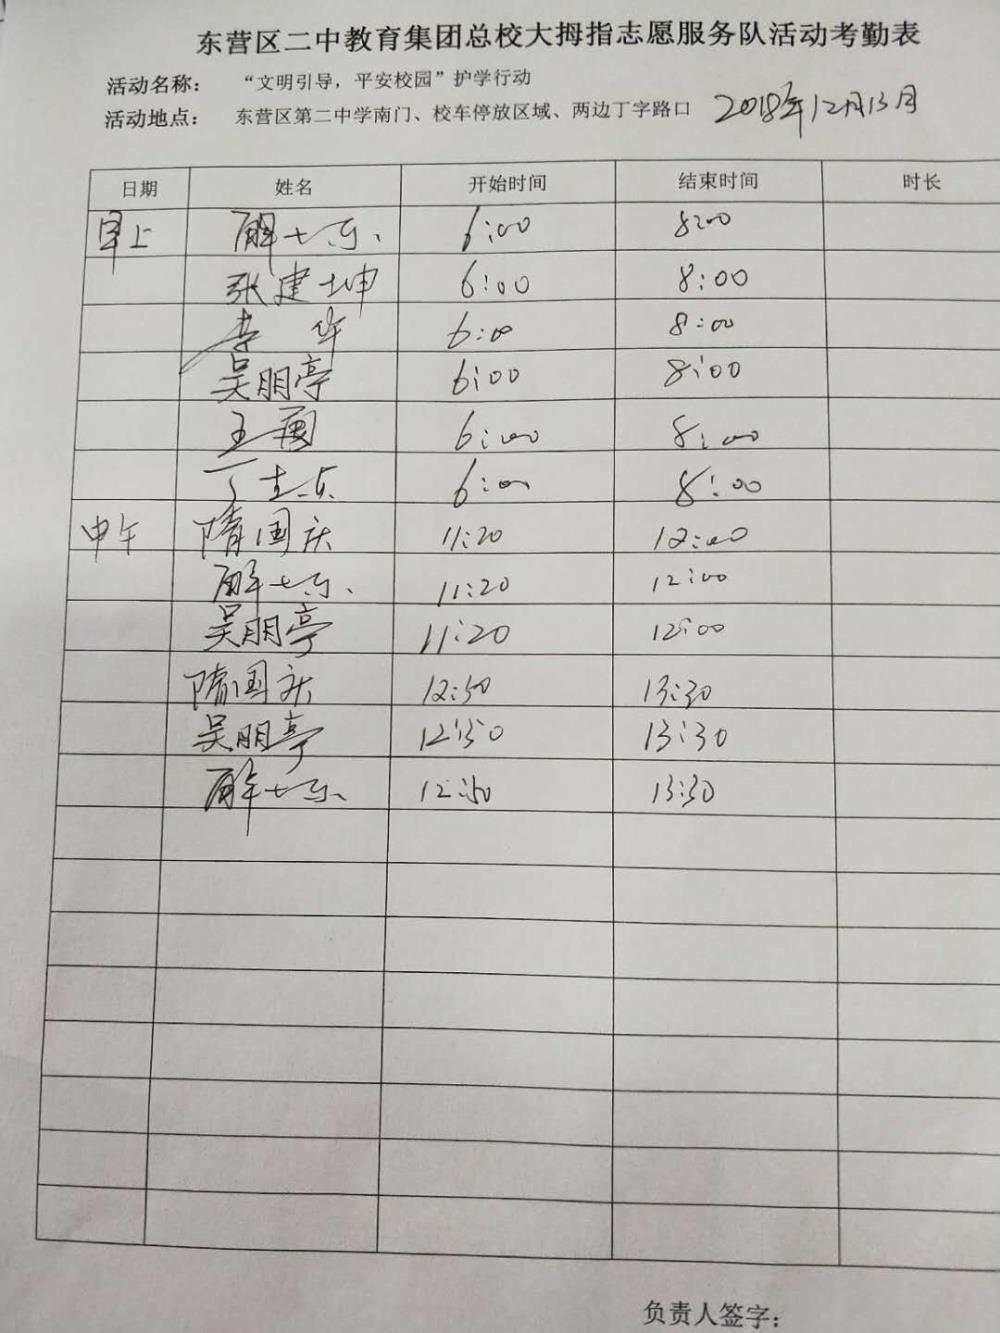 东营区二中教育集团总校大拇指志愿服务队活动考勤表
活动名称： “文明引导，平安校园”护学行动
活动地点： 东营区第二中学南门、校车停放区域、两边丁字路口 2018年12月13日
日期 姓名 开始时间 结束时间 时长
早上 解 6:00 8:00
张建坤 6:00 8:00
李华 6:00 8:00
吴朋亭 6:00 8:00
王 6:00 8:00
丁 6:00 8:00
中午 隋国庆 11:20 12:00
解 11:20 12:00
吴朋亭 11:20 12:00
隋国庆 12:50 13:30
吴朋亭 12:50 13:30
解 12:50 13:30
负责人签字：